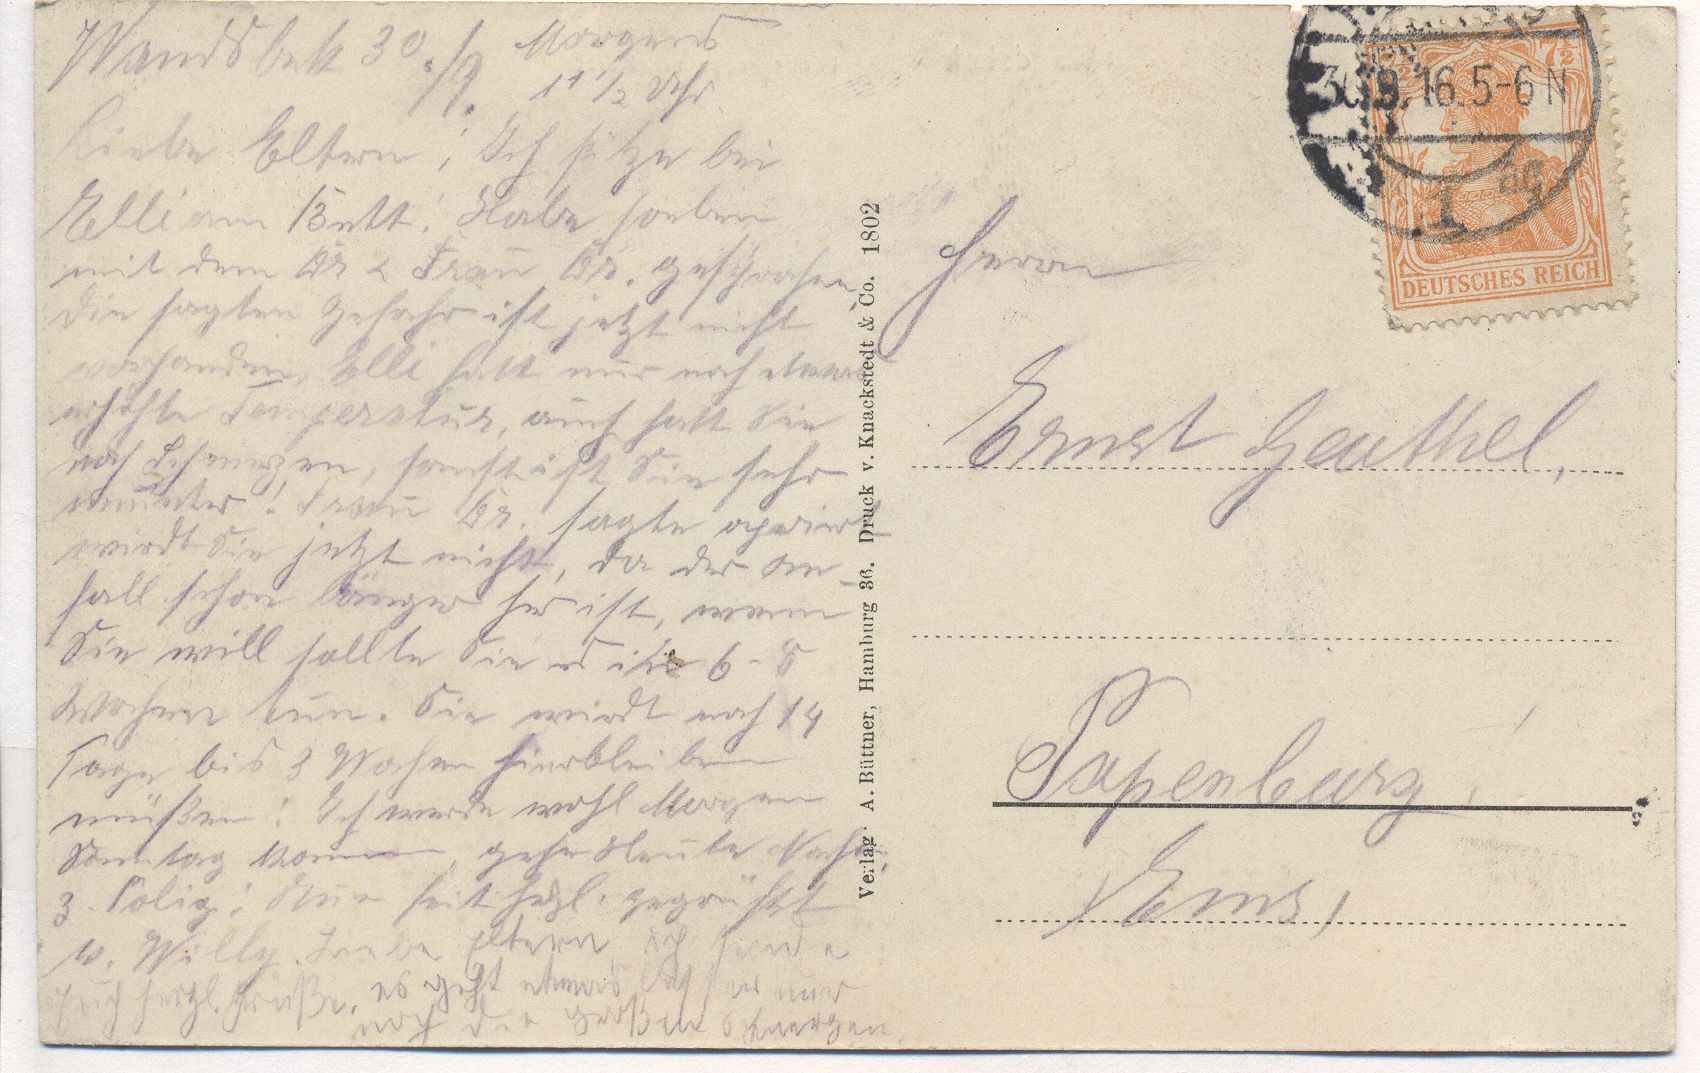 Wandsbek 30./9. Morgens
11 1/2 Uhr
Liebe Eltern! Ich sitze bei
Elli am Bett! Habe soeben
mit dem Dr & Frau Dr. gesprochen,
die sagten Gefahr ist jetzt nicht
vorhanden, Elli hatt nur noch etwas
erhöhte Temperatur, auch hatt Sie
noch Schmerzen, sonst ist Sie sehr
munter! Frau Dr. sagte operiert
wirdt Sie jetzt nicht, da der An-
fall schon länger her ist, wenn
Sie will sollte Sie es in 6-8
Wochen tun. Sie wirdt noch 14
Tage bis 3 Wochen hierbleiben
müßen! Ich werde wohl Morgen
Sonntag kommen, gehe Heute Nachm.
z. Poliz! Nun seit herzl. gegrüßt
v. Willy. Liebe Eltern, ich sende
Euch herzl. Grüße, es geht etwas besser nur
noch die großen Schmerzen.
Verlag A. Büttner, Hamburg 36. Druck v. Knackstedt & Co. 1802
30.9.16.5-6N
7½
DEUTSCHES REICH
Herrn
Ernst Geuthel,
Papenburg,
/Ems/